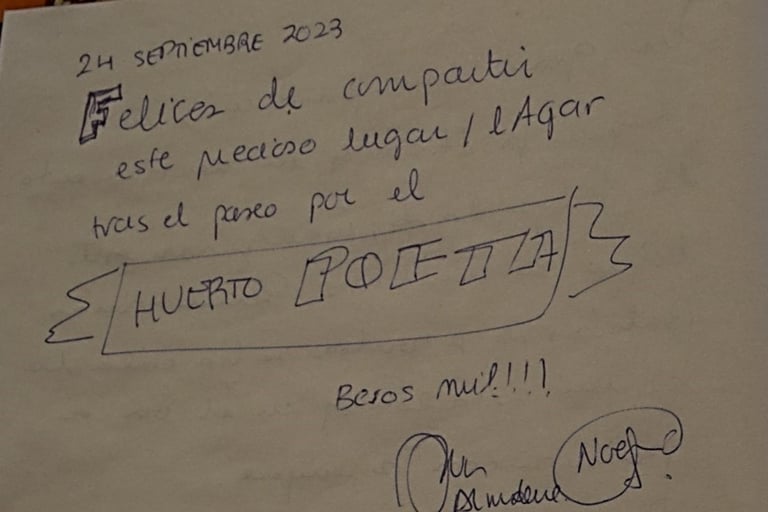 24 SEPTIEMBRE 2023
Felices de compartir
este precioso lugar / lAgar
tras el paseo por el
HUERTO POETTA
Besos mil!!!
Almudena